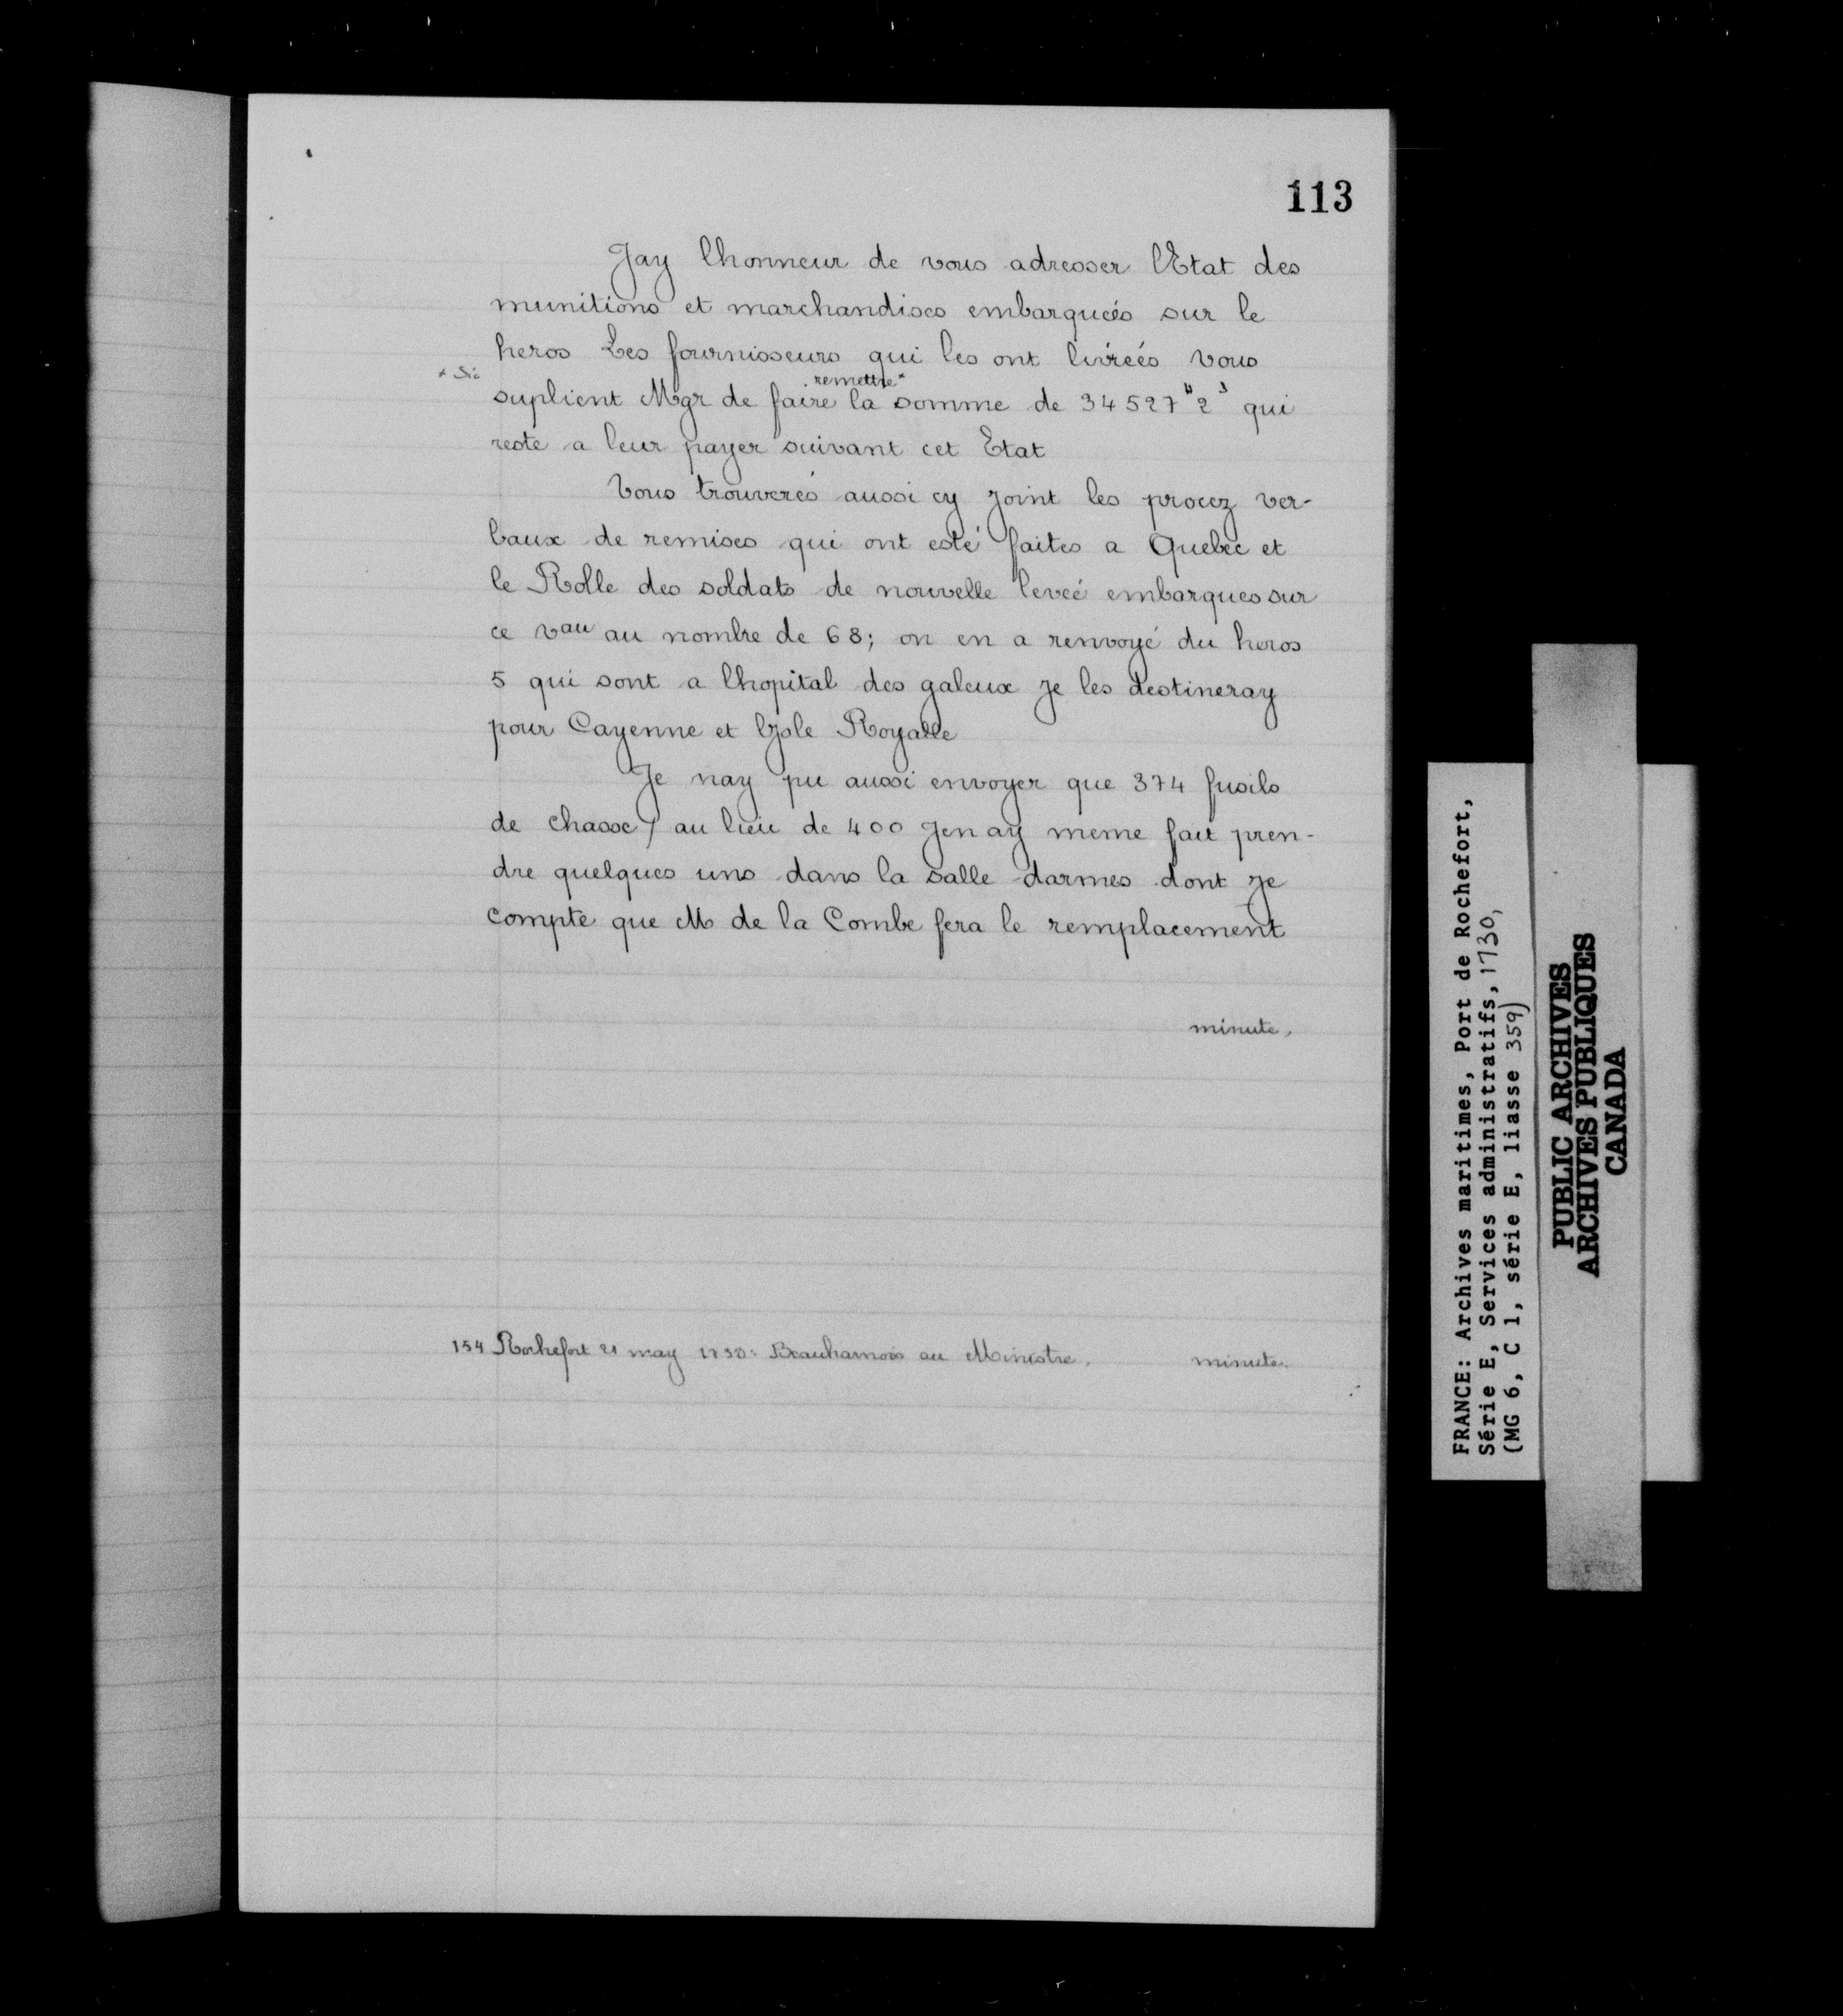 113
Jay lhonneur de vous adresser lEtat des
munitions et marchandises embarqueés sur le
heros Les fournisseurs qui les ont livreés vous
* Sic
remettre*
suplient Mgr de faire la somme de 34527" 2 qui
reste a leur payer suivant cet Etat
Vous trouverés aussi cy joint les procez ver-
baux de remises qui ont esté faites a Quebec et
le Rolle des soldats de nouvelle leveé embarques sur
ce vau au nombre de 68; on en a renvoyé du heros
5 qui sont a lhopital des galeux je les destineray
pour Cayenne et lysle Royalle
Je nay pu aussi envoyer que 374 fusils
de chasse / au lieu de 400 jen ay meme fait pren-
dre quelques uns dans la salle darmes dont je
compte que M de la Combe fera le remplacement
minute.
154 Rochefort 21 may 1730: Beauharnois au Ministre. minute.
FRANCE: Archives maritimes, Port de Rochefort,
Série E, Services administratifs, 1730,
(MG 6, C 1, série E, liasse 359)
PUBLIC ARCHIVES
ARCHIVES PUBLIQUES
CANADA